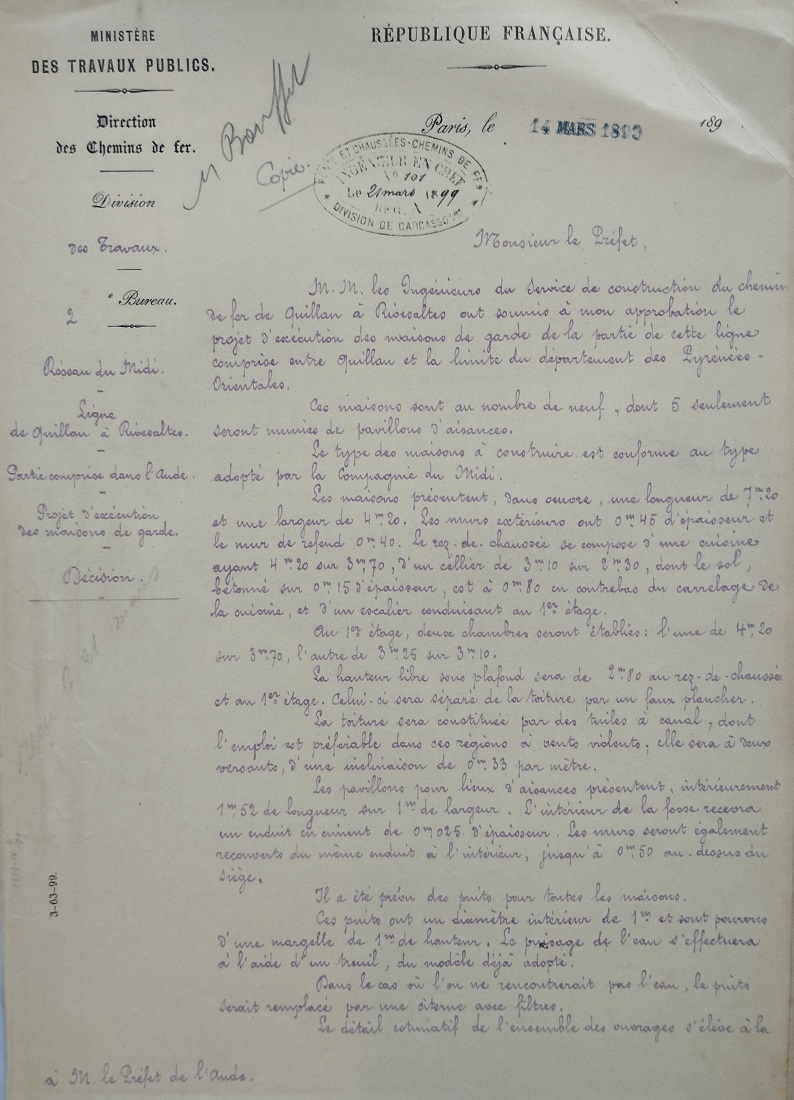 MINISTÈRE
DES TRAVAUX PUBLICS.
RÉPUBLIQUE FRANÇAISE.
Direction
des Chemins de fer.
M Bouffet
Copie.
Paris, le 14 MARS 1899 189
PONTS ET CHAUSSÉES-CHEMINS DE FER
INGÉNIEUR EN CHEF
No 101
Le 21 mars 1899
DIVISION DE CARCASSONNE
Division
des Travaux.
2e Bureau.
Réseau du Midi.
Ligne
de Quillan à Rivesaltes.
Partie comprise dans l'Aude.
Projet d'exécution
des maisons de garde.
Décision.
3-63-99.
Monsieur le Préfet,
M.M. les Ingénieurs du Service de construction du chemin
de fer de Quillan à Rivesaltes ont soumis à mon approbation le
projet d'exécution des maisons de garde de la partie de cette ligne
comprise entre Quillan et la limite du département des Pyrénées-
Orientales.
Ces maisons sont au nombre de neuf, dont 5 seulement
seront munies de pavillons d'aisances.
Le type des maisons à construire est conforme au type
adopté par la Compagnie du Midi.
Les maisons présentent, dans œuvre, une longueur de 7m20
et une largeur de 4m20. Les murs extérieurs ont 0m45 d'épaisseur et
le mur de refend 0m40. Le rez-de-chaussée se compose d'une cuisine
ayant 4m20 sur 3m70, d'un cellier de 3m10 sur 2m30, dont le sol,
bétonné sur 0m15 d'épaisseur, est à 0m80 en contrebas du carrelage de
la cuisine, et d'un escalier conduisant au 1er étage.
Au 1er étage, deux chambres seront établies: l'une de 4m20
sur 3m70, l'autre de 3m25 sur 3m10.
La hauteur libre sous plafond sera de 2m80 au rez-de-chaussée
et au 1er étage. Celui-ci sera séparé de la toiture par un faux plancher.
La toiture sera constituée par des tuiles à canal, dont
l'emploi est préférable dans ces régions à vents violents; elle sera à deux
versants, d'une inclinaison de 0m33 par mètre.
Les pavillons pour lieux d'aisances présentent, intérieurement
1m52 de longueur sur 1m de largeur. L'intérieur de la fosse recevra
un enduit en ciment de 0m025 d'épaisseur. Les murs seront également
recouverts du même enduit à l'intérieur, jusqu'à 0m50 au-dessus du
siège.
Il a été prévu des puits pour toutes les maisons.
Ces puits ont un diamètre intérieur de 1m et sont pourvus
d'une margelle de 1m de hauteur. Le puisage de l'eau s'effectuera
à l'aide d'un treuil, du modèle déjà adopté.
Dans le cas où l'on ne rencontrerait pas l'eau, le puits
serait remplacé par une citerne avec filtres.
Le détail estimatif de l'ensemble des ouvrages s'élève à la
à M. le Préfet de l'Aude.